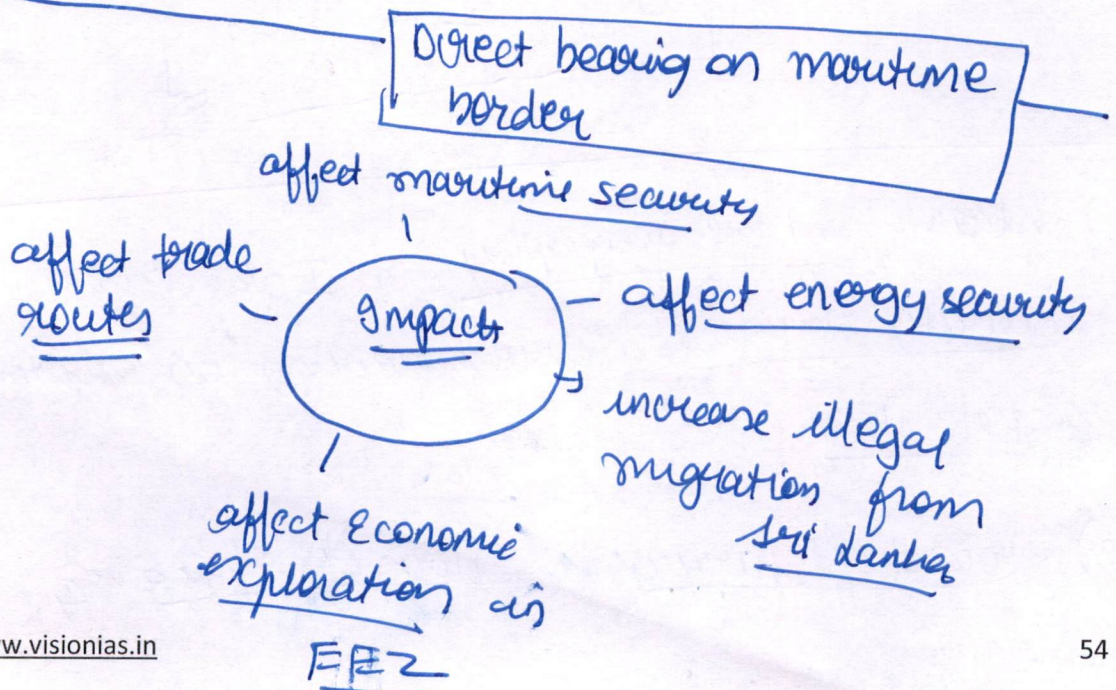 Direct bearing on maritime
border
affect maritime security
affect trade
routes
Impacts
affect energy security
increase illegal
migration from
Sri Lanka
affect Economic
exploration in
EEZ
w.visionias.in
54